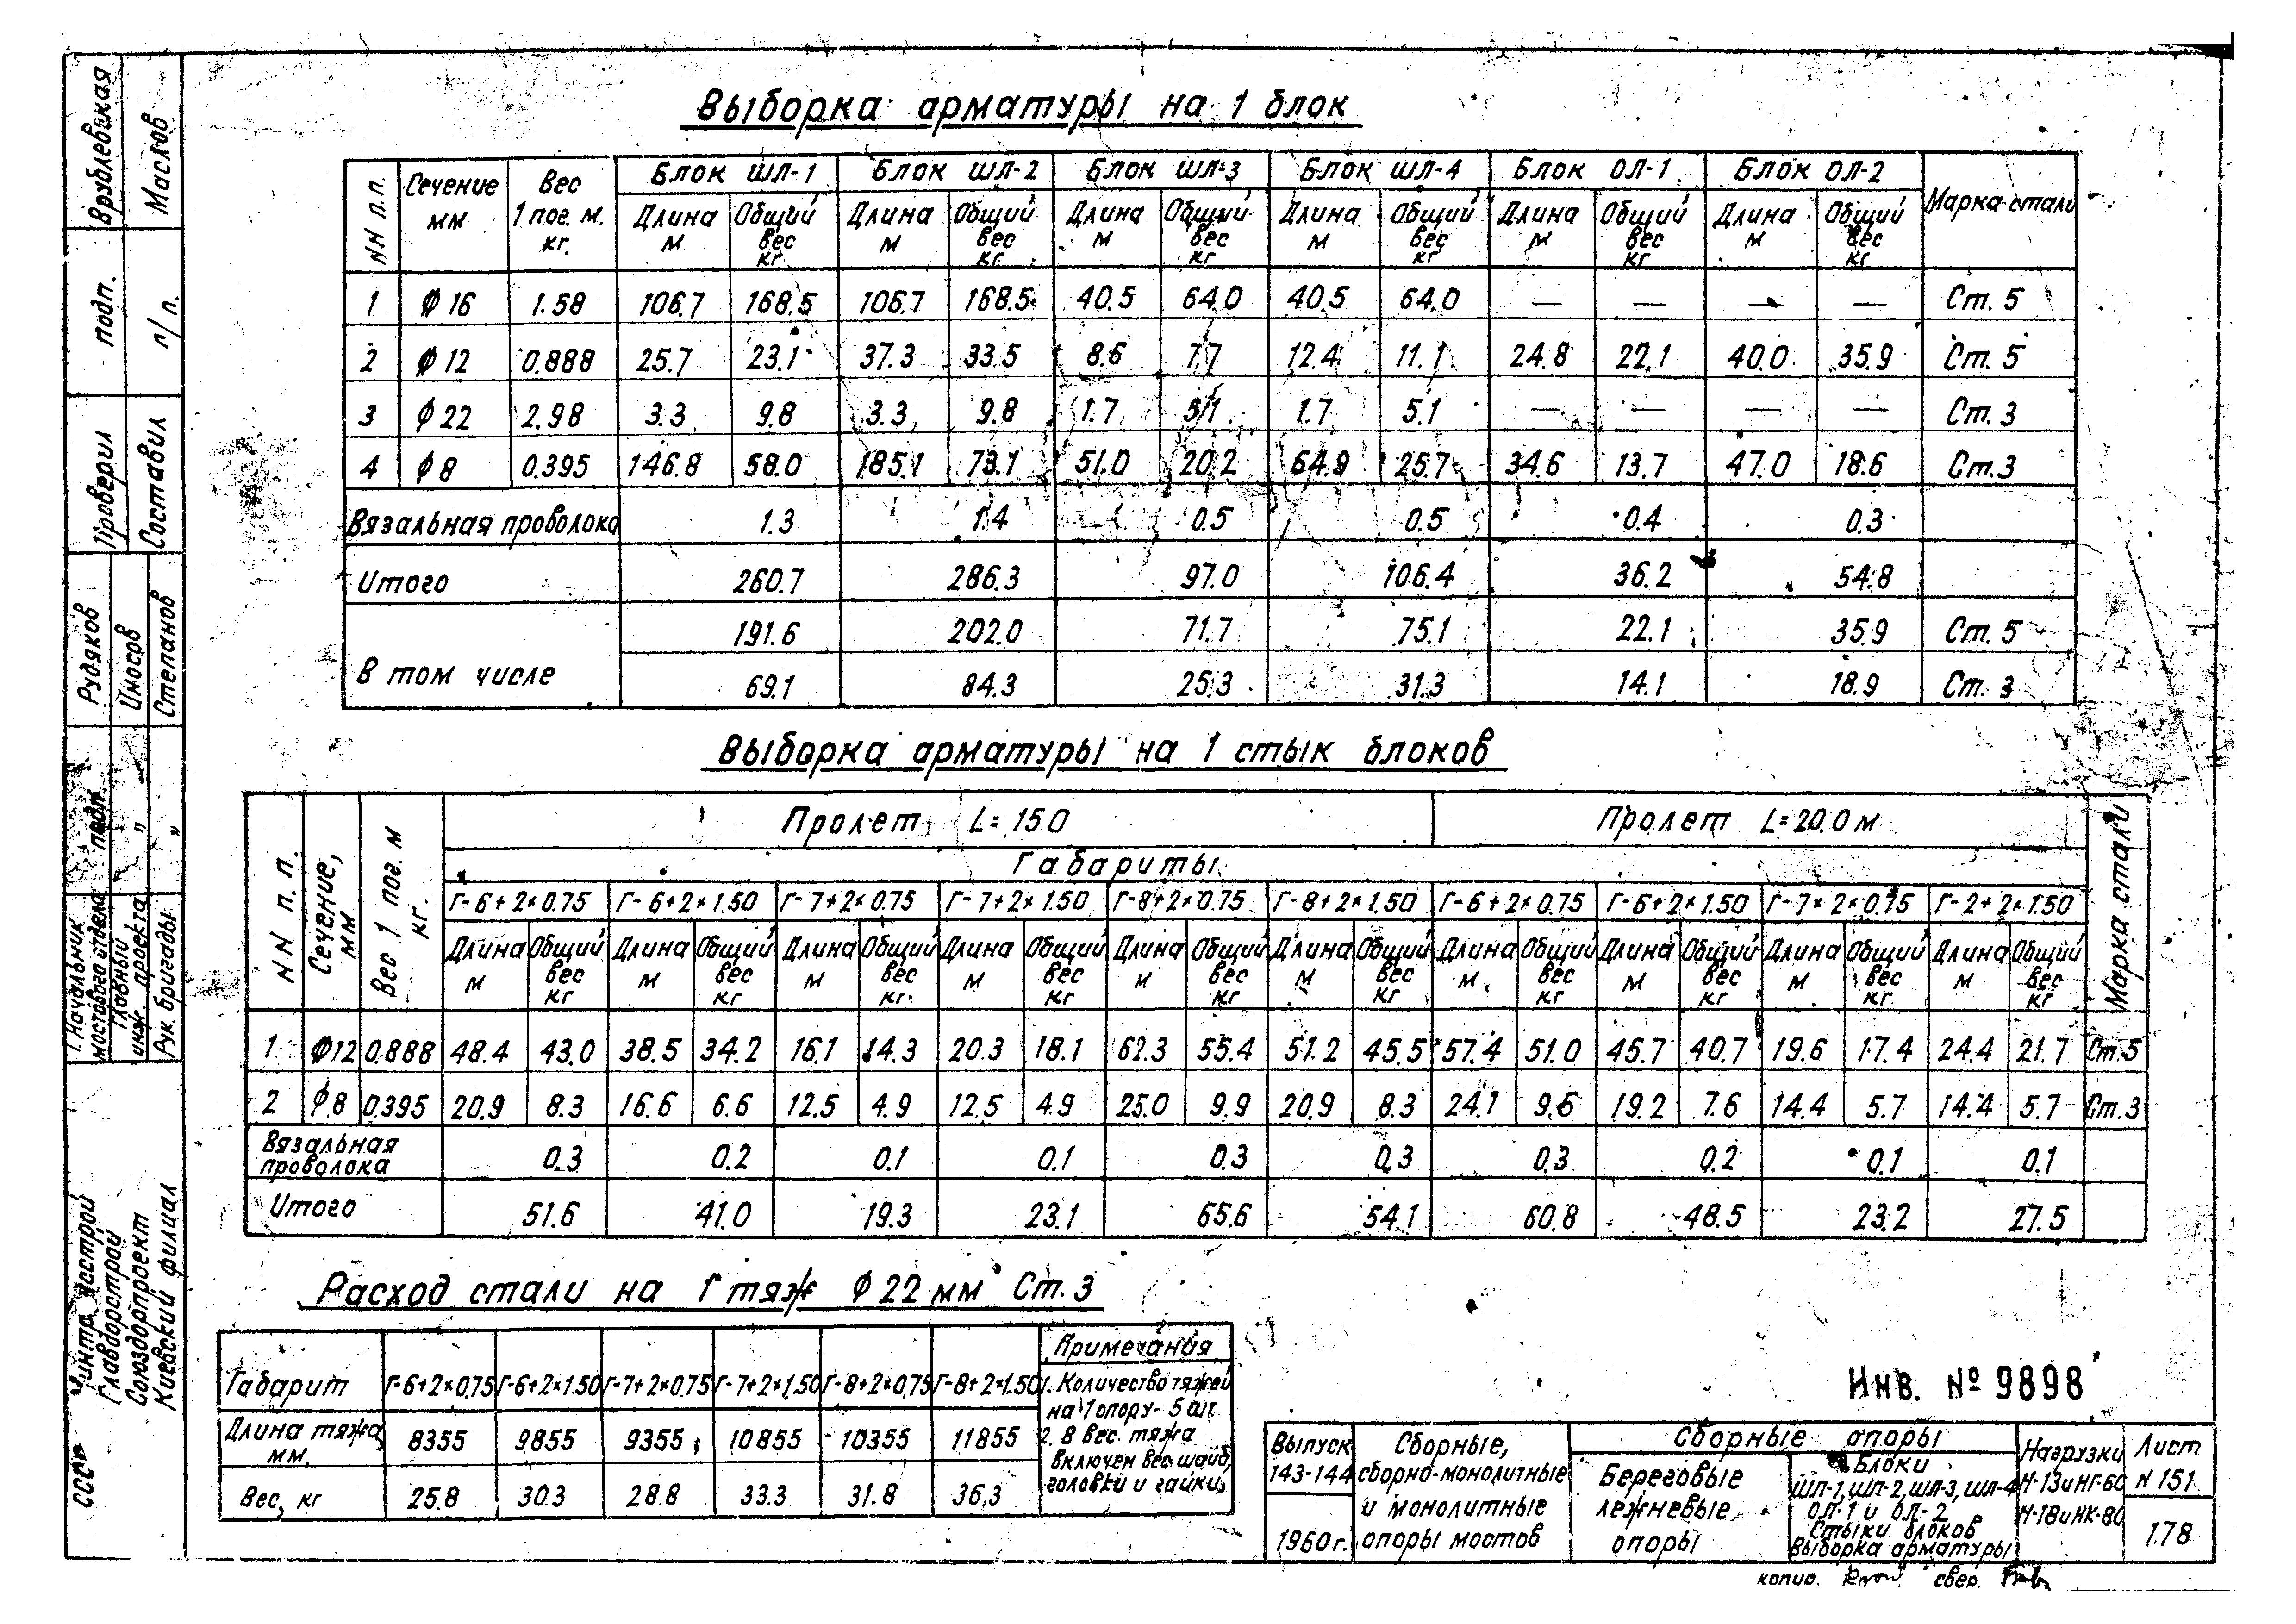 Выборка арматуры на 1 блок
NN п.п. Сечение мм Вес 1 пог. м. кг. Блок ШЛ-1 Блок ШЛ-2 Блок ШЛ-3 Блок ШЛ-4 Блок ОЛ-1 Блок ОЛ-2 Марка стали
Длина м Общий вес кг Длина м Общий вес кг Длина м Общий вес кг Длина м Общий вес кг Длина м Общий вес кг Длина м Общий вес кг
1 ϕ16 1.58 106.7 168.5 106.7 168.5 40.5 64.0 40.5 64.0 — — — — Ст. 5
2 ϕ12 0.888 25.7 23.1 37.3 33.5 8.6 7.7 12.4 11.1 24.8 22.1 40.0 35.9 Ст. 5
3 ϕ22 2.98 3.3 9.8 3.3 9.8 1.7 5.1 1.7 5.1 — — — — Ст. 3
4 ϕ8 0.395 146.8 58.0 185.1 73.1 51.0 20.2 64.9 25.7 34.6 13.7 47.0 18.6 Ст.3
Вязальная проволока 1.3 1.4 0.5 0.5 0.4 0.3
Итого 260.7 286.3 97.0 106.4 36.2 54.8
В том числе 191.6 202.0 71.7 75.1 22.1 35.9 Ст. 5
69.1 84.3 25.3 31.3 14.1 18.9 Ст. 3
Выборка арматуры на 1 стык блоков
NN п. п. Сечение, мм Вес 1 пог. м кг. Пролет L= 15.0 Пролет L=20.0 м Марка стали
Габариты
Г-6+2×0.75 Г-6+2×1.50 Г-7+2×0.75 Г-7+2×1.50 Г-8+2×0.75 Г-8+2×1.50 Г-6+2×0.75 Г-6+2×1.50 Г-7×2×0.75 Г-2+2×1.50
Длина м Общий вес кг Длина м Общий вес кг Длина м Общий вес кг. Длина м Общий вес кг Длина м Общий вес кг Длина м Общий вес кг Длина м Общий вес кг Длина м Общий вес кг Длина м Общий вес кг Длина м Общий вес кг
1 ϕ12 0.888 48.4 43.0 38.5 34.2 16.1 14.3 20.3 18.1 62.3 55.4 51.2 45.5 57.4 51.0 45.7 40.7 19.6 17.4 24.4 21.7 Ст.5
2 ϕ8 0.395 20.9 8.3 16.6 6.6 12.5 4.9 12.5 4.9 25.0 9.9 20.9 8.3 24.1 9.6 19.2 7.6 14.4 5.7 14.4 5.7 Ст.3
Вязальная проволока 0.3 0.2 0.1 0.1 0.3 0.3 0.3 0.2 0.1 0.1
Итого 51.6 41.0 19.3 23.1 65.6 54.1 60.8 48.5 23.2 27.5
Расход стали на 1 тяж ϕ22 мм Ст. 3
Габарит Г-6+2×0.75 Г-6+2×1.50 Г-7+2×0.75 Г-7+2×1.50 Г-8+2×0.75 Г-8+2×1.50
Длина тяжа, мм. 8355 9855 9355 10855 10355 11855
Вес, кг 25.8 30.3 28.8 33.3 31.8 36.3
Примечания
1. Количество тяжей
на 1 опору - 5 шт.
2. В вес тяжа
включен вес шайб,
головки и гайки.
Инв. № 9898
Выпуск
143-144
1960 г.
Сборные,
сборно-монолитные
и монолитные
опоры мостов
Сборные опоры
Береговые
лежневые
опоры
Блоки
ШЛ-1, ШЛ-2, ШЛ-3, ШЛ-4
ОЛ-1 и ОЛ-2
Стыки блоков
Выборка арматуры
Нагрузки
Н-13 и НГ-60
Н-18 и НК-80
Лист
N 151
178
копир. свер.
Врублевская
Маслов
подп.
п/п.
Проверил
Составил
Рудяков
Иносов
Степанов
подп.
"
"
"
1. Начальник
мостового отдела
Главный
инж. проекта
Рук. бригады
СССР
Минтрансстрой
Главдорстрой
Союздорпроект
Киевский филиал